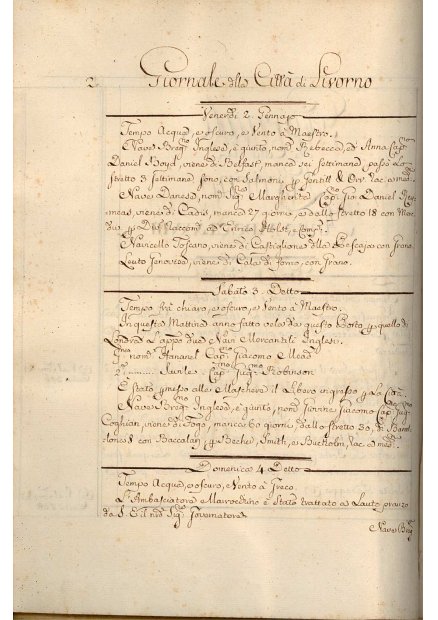 2.
Giornale della Città di Livorno
Venerdi 2. Gennajo
Tempo Acqua, e oscuro, e Vento à Maestro.
Nave Brig.no Inglese, è giunto, nom.o Rebecca, ed Anna Cap.no
Daniel Boyd, viene di Belfast, manca sei Settimane, passò lo
Stretto 3 Settimane sono, con Salmoni, p Gentill & Orr
Nave Danese, nom. Marghareta Cap. Gio Daniel
viene di Cadis, manca 27 giorni, e dallo Stretto 18 con
p Raccom. ad Enrico Holst, e Comp.
Navicello Toscano, viene di Castiglione della Pescaja con Grano.
Leuto Genovese, viene di Cala di Forno, con Grano.
Sabato 3. Detto
Tempo frà chiaro, e oscuro, e Vento à Maestro.
In questa Mattina anno fatto vela da questo Porto p quello di
Londra l'appo due Navi Mercantili Inglesi.
P.mo nom. Hananel Cap.no Giacomo Mead
2.do Cap. Robinson
È Stato p messo alle Maschere il libero ingresso p La Città.
Nave Brig. Inglese, è giunto, nom. Giacomo Cap.
Coghlan, viene di Fogo, manca 60 giorni, e dallo Stretto 30,
8 con Baccalari, p Becher, Smith, e
Domenica 4. Detto
Tempo Acqua, e oscuro, e Vento à Greco.
L'Ambasciatore Marocchino è Stato trattato a Lauto pranzo
da S. E. il nro Sig. Governatore
Nave Brig